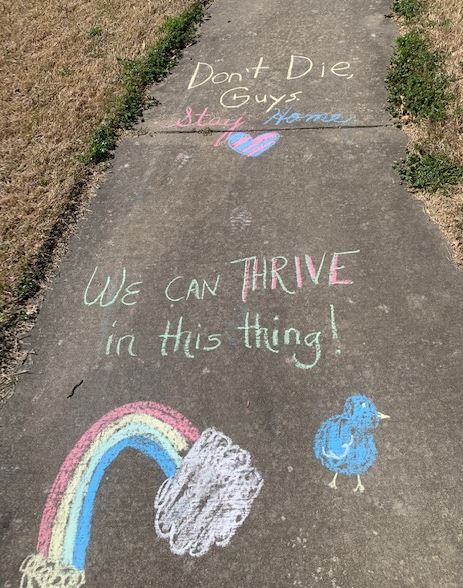 Don't Die,
Guys.
Stay Home.
We can THRIVE
in this thing!